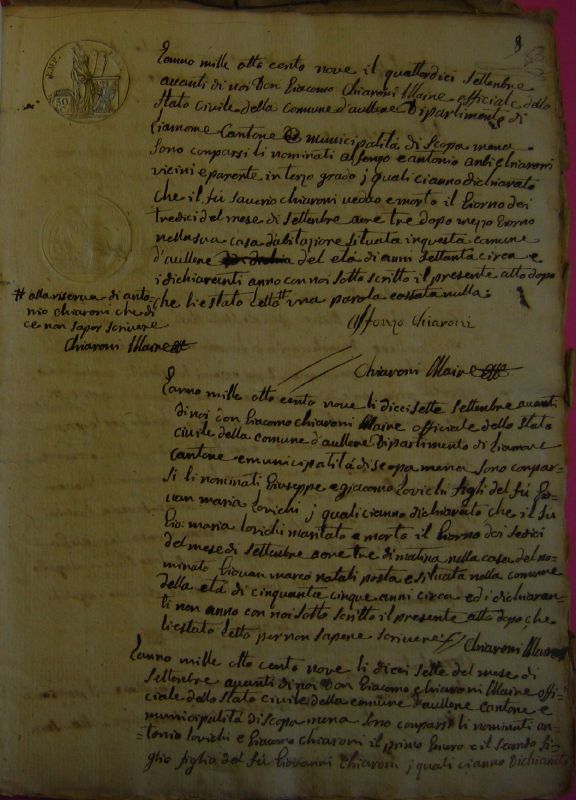 8
Lanno mille otto cento nove il quattordici Settembre
avanti di noi Don Giacomo Chiaroni Maire officiale dello
stato Civile della Comune d'aullene Dipartimento di
Liamone Cantone e municipalità di Scopa mena
Sono conparsi li nominati alfonzo e antonio anbi chiaroni
vicini e parente in terzo grado j quali cianno dichiarato
che il fù Saverio chiaroni vedao e morto il Giorno dei
tredici del mese di Settembre aore tre dopo mezo Giorno
nella sua casa d'abitazione situata in questa comune
d'aullene del età di anni Settanta circa e
i dichiaranti anno con noi sotto scritto il presente atto dopo
che li è stato detto # una parola cassata nulla.
# alla riserva di anto-
nio chiaroni che di
ce non saper scrivere
Chiaroni Maire
Alfonzo Chiaroni
Chiaroni Maire
Lanno mille otto cento nove li dieci sette Settembre avanti
di noi Don Giacomo chiaroni Maire officiale dello stato
Civile della comune d'aullene Dipartimento di Liamone
Cantone e municipalità di scopa mena Sono conpar-
si li nominati Giuseppe e giacomo Lovichi figli del fù Gio-
van maria Lovichi j quali cianno dichiarato che il fù
Gio: maria Lovichi maritato e morto il Giorno dei sedici
del mese di settembre aore tre di matina nella casa del no-
minato Giovan marco natali posta e situata nella comune
della età di cinquanta cinque anni circa ed i dichiaran-
ti non anno con noi sotto scritto il presente atto dopo che
li è stato detto per non sapere scrivere. Chiaroni Maire
Lanno mille otto cento nove li dieci sette del mese di
Settembre avanti di noi Don Giacomo chiaroni Maire offi-
ciale dello stato Civile della comune d'aullene cantone e
municipalità di scopa mena Sono conparsi li nominati an-
tonio Lovichi e Giacomo chiaroni il primo Genero e il secondo fi-
glio figlio del fù Giovanni Chiaroni j quali cianno Dichiarato